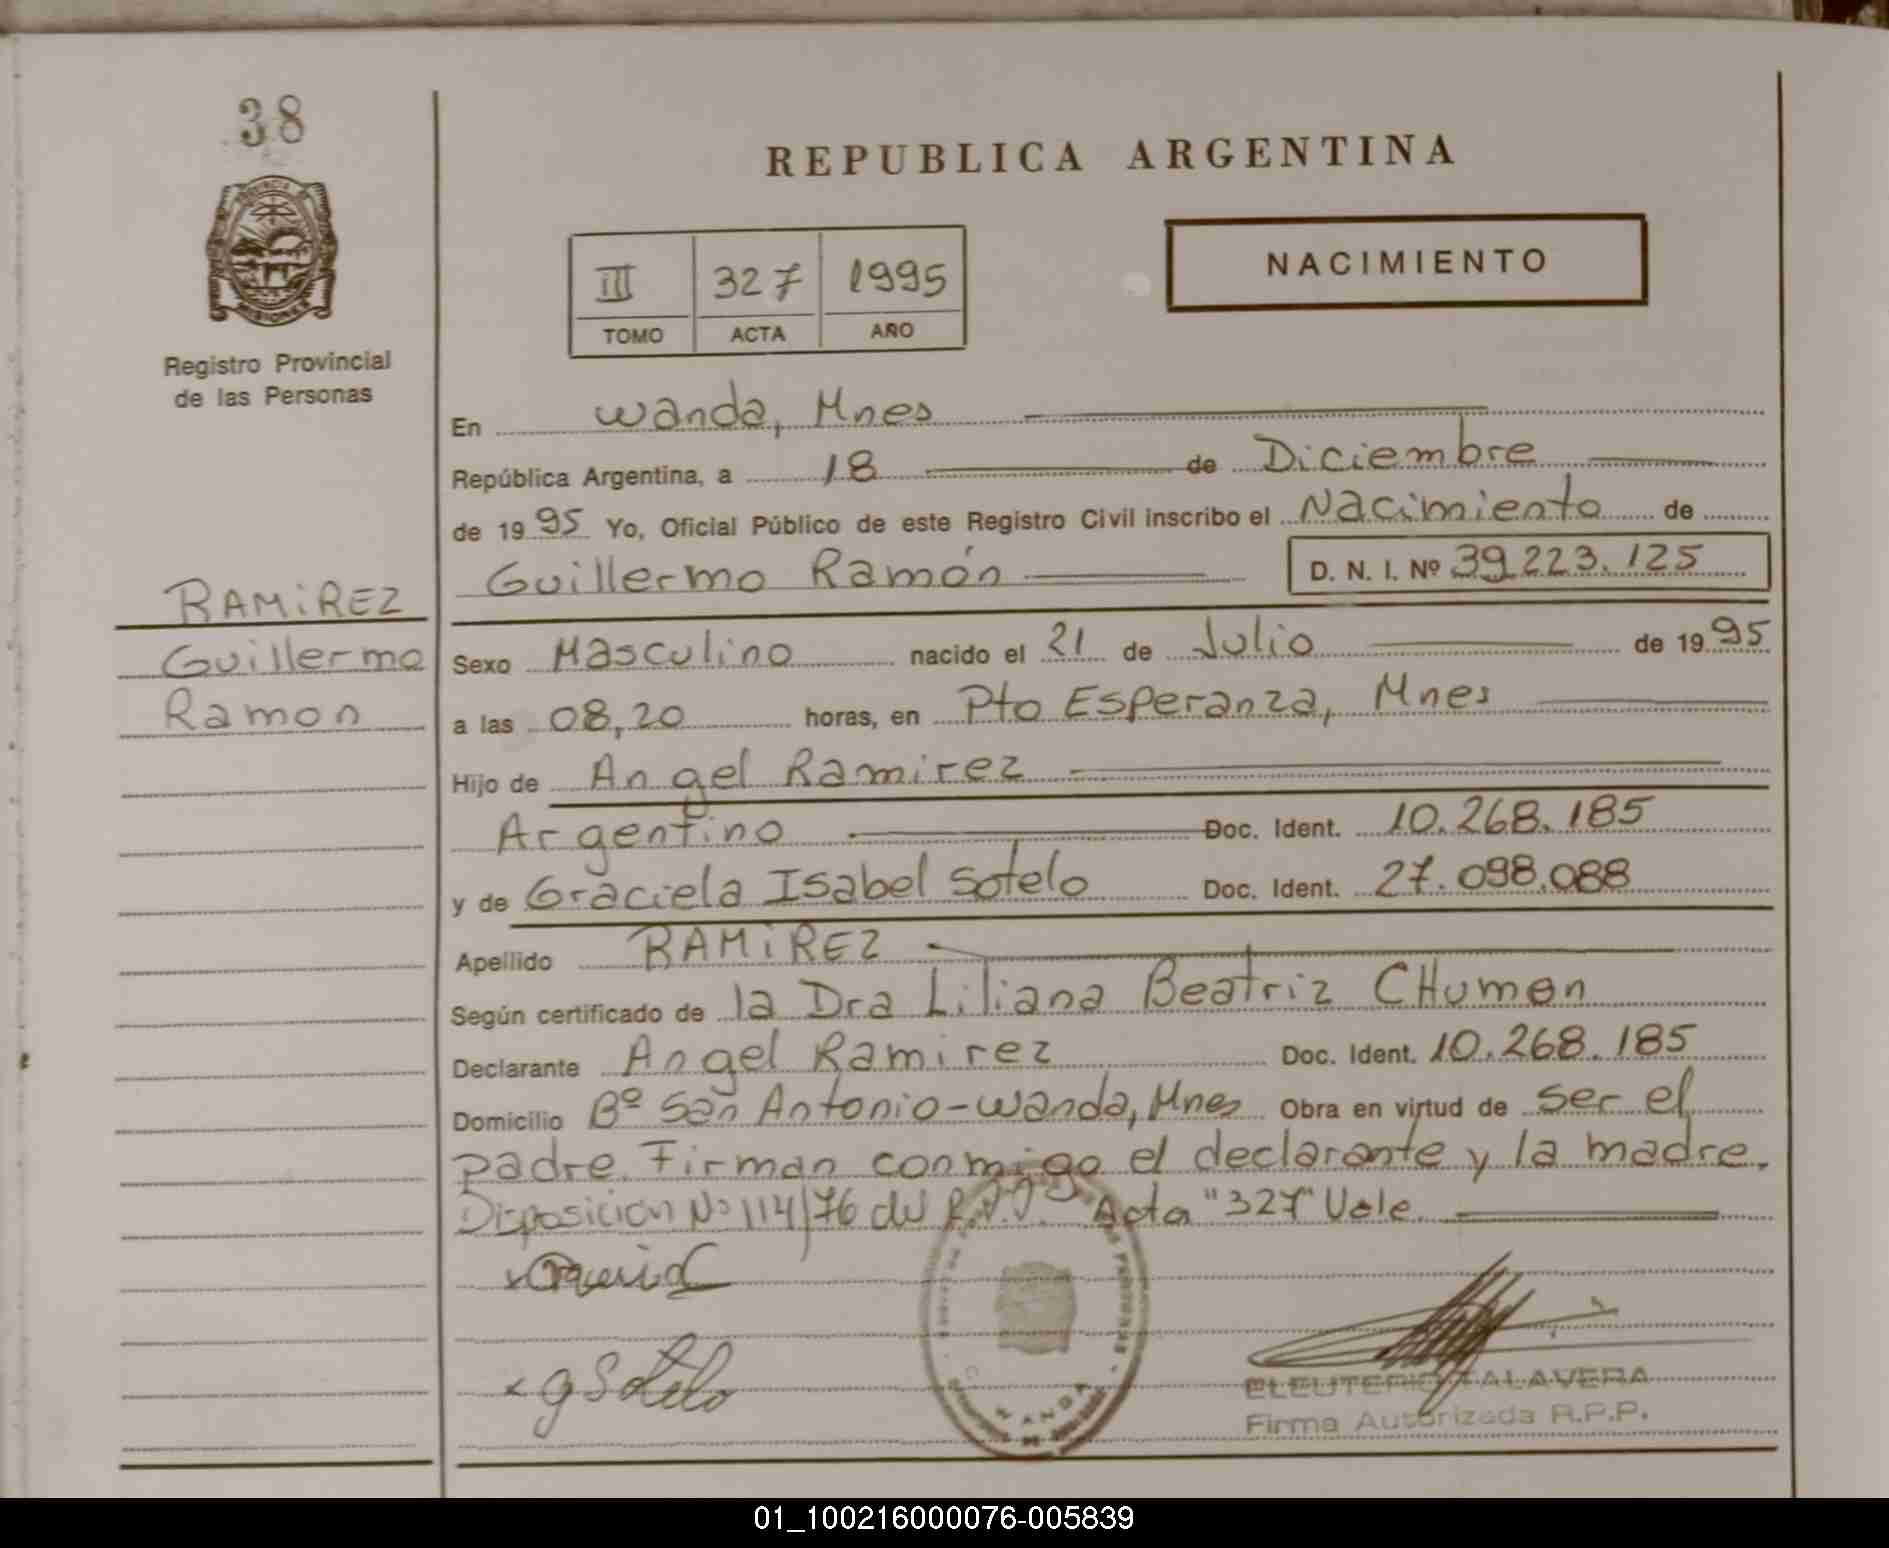 38
PROVINCIA
MISIONES
Registro Provincial
de las Personas
REPUBLICA ARGENTINA
III 327 1995
TOMO ACTA AÑO
NACIMIENTO
En Wanda, Mnes
República Argentina, a 18 de Diciembre
de 1995 Yo, Oficial Público de este Registro Civil inscribo el Nacimiento de
Guillermo Ramón D. N. I. Nº 39.223.125
RAMIREZ
Guillermo
Ramon
Sexo Masculino nacido el 21 de Julio de 1995
a las 08,20 horas, en Pto Esperanza, Mnes
Hijo de Angel Ramirez
Argentino Doc. Ident. 10.268.185
y de Graciela Isabel Sotelo Doc. Ident. 27.098.088
Apellido RAMIREZ
Según certificado de la Dra Liliana Beatriz CHumen
Declarante Angel Ramirez Doc. Ident. 10.268.185
Domicilio Bº San Antonio-Wanda, Mnes Obra en virtud de ser el
padre. Firman conmigo el declarante y la madre.
Disposicion Nº 114/76 del R.P.P. Acta "327" Vale
x g Sotelo
WANDA
ELEUTERIO TALAVERA
Firma Autorizada R.P.P.
01_100216000076-005839